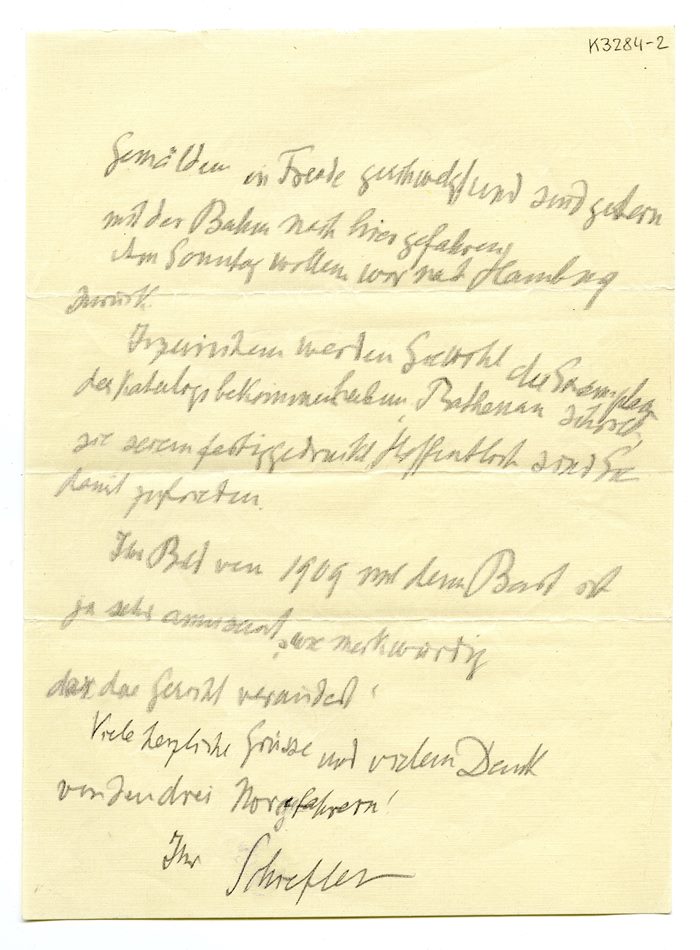 K3284-2
Gemälden in Freude geschwelgt und sind gestern
mit der Bahn nach hier gefahren,
Am Sonntag wollen wir nach Hamburg
zurück.
Inzwischen werden Sie wohl die Exemplare
des Katalogs bekommen haben, Rathenau schrieb,
sie seien fertiggedruckt. Hoffentlich sind Sie
damit zufrieden.
Ihr Bild von 1909 mit dem Bart ist
ja sehr amusant, wie merkwürdig
das das Gesicht verändert!
Viele herzliche Grüsse und vielen Dank
von den drei Norgefahrern!
Ihr Schiefler